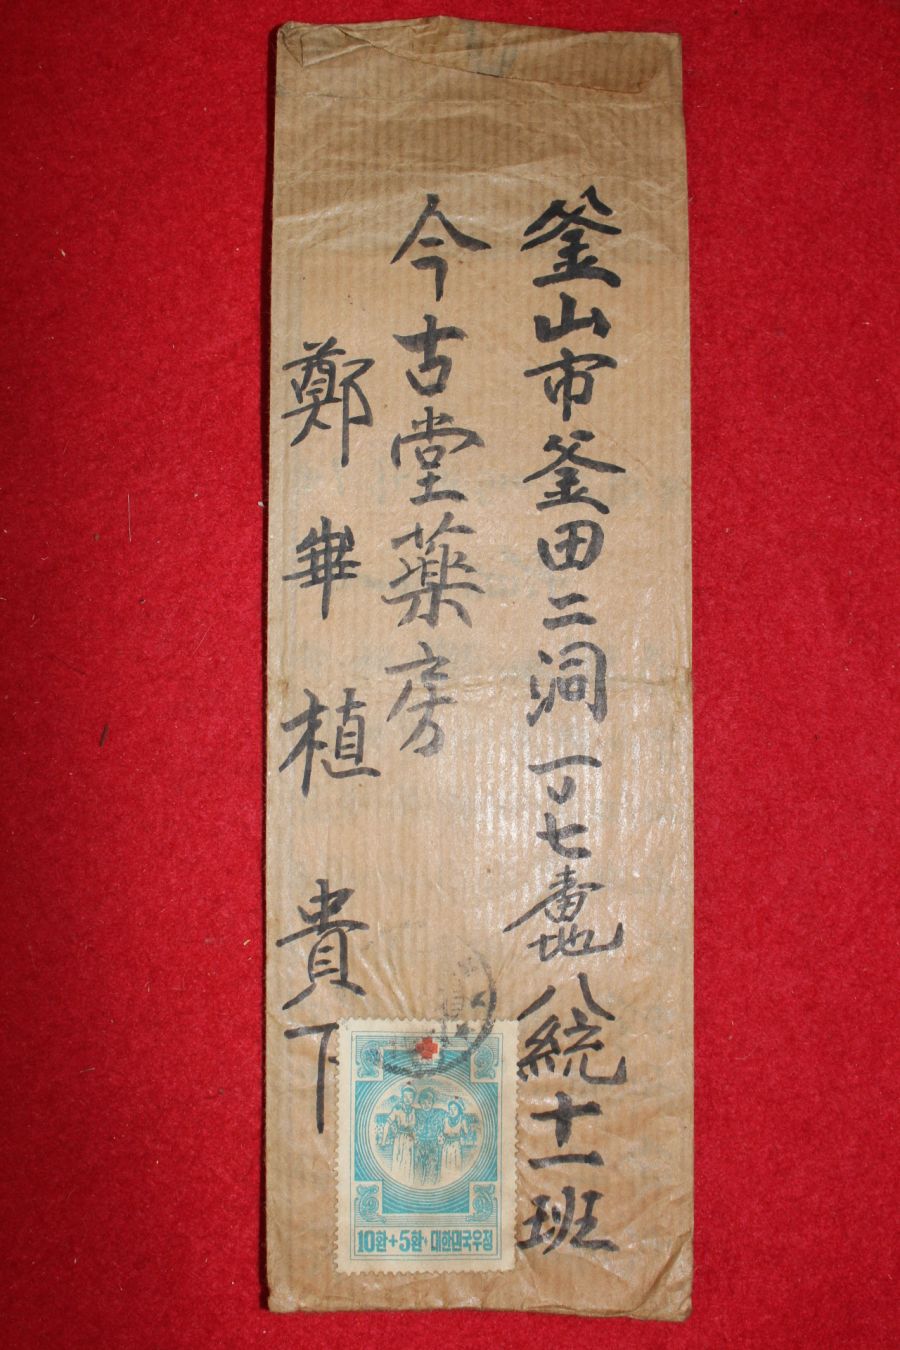 釜山市釜田二洞一〇七番地八統十一班
今古堂薬房
鄭畢植貴下
10환+5환·대한민국우정